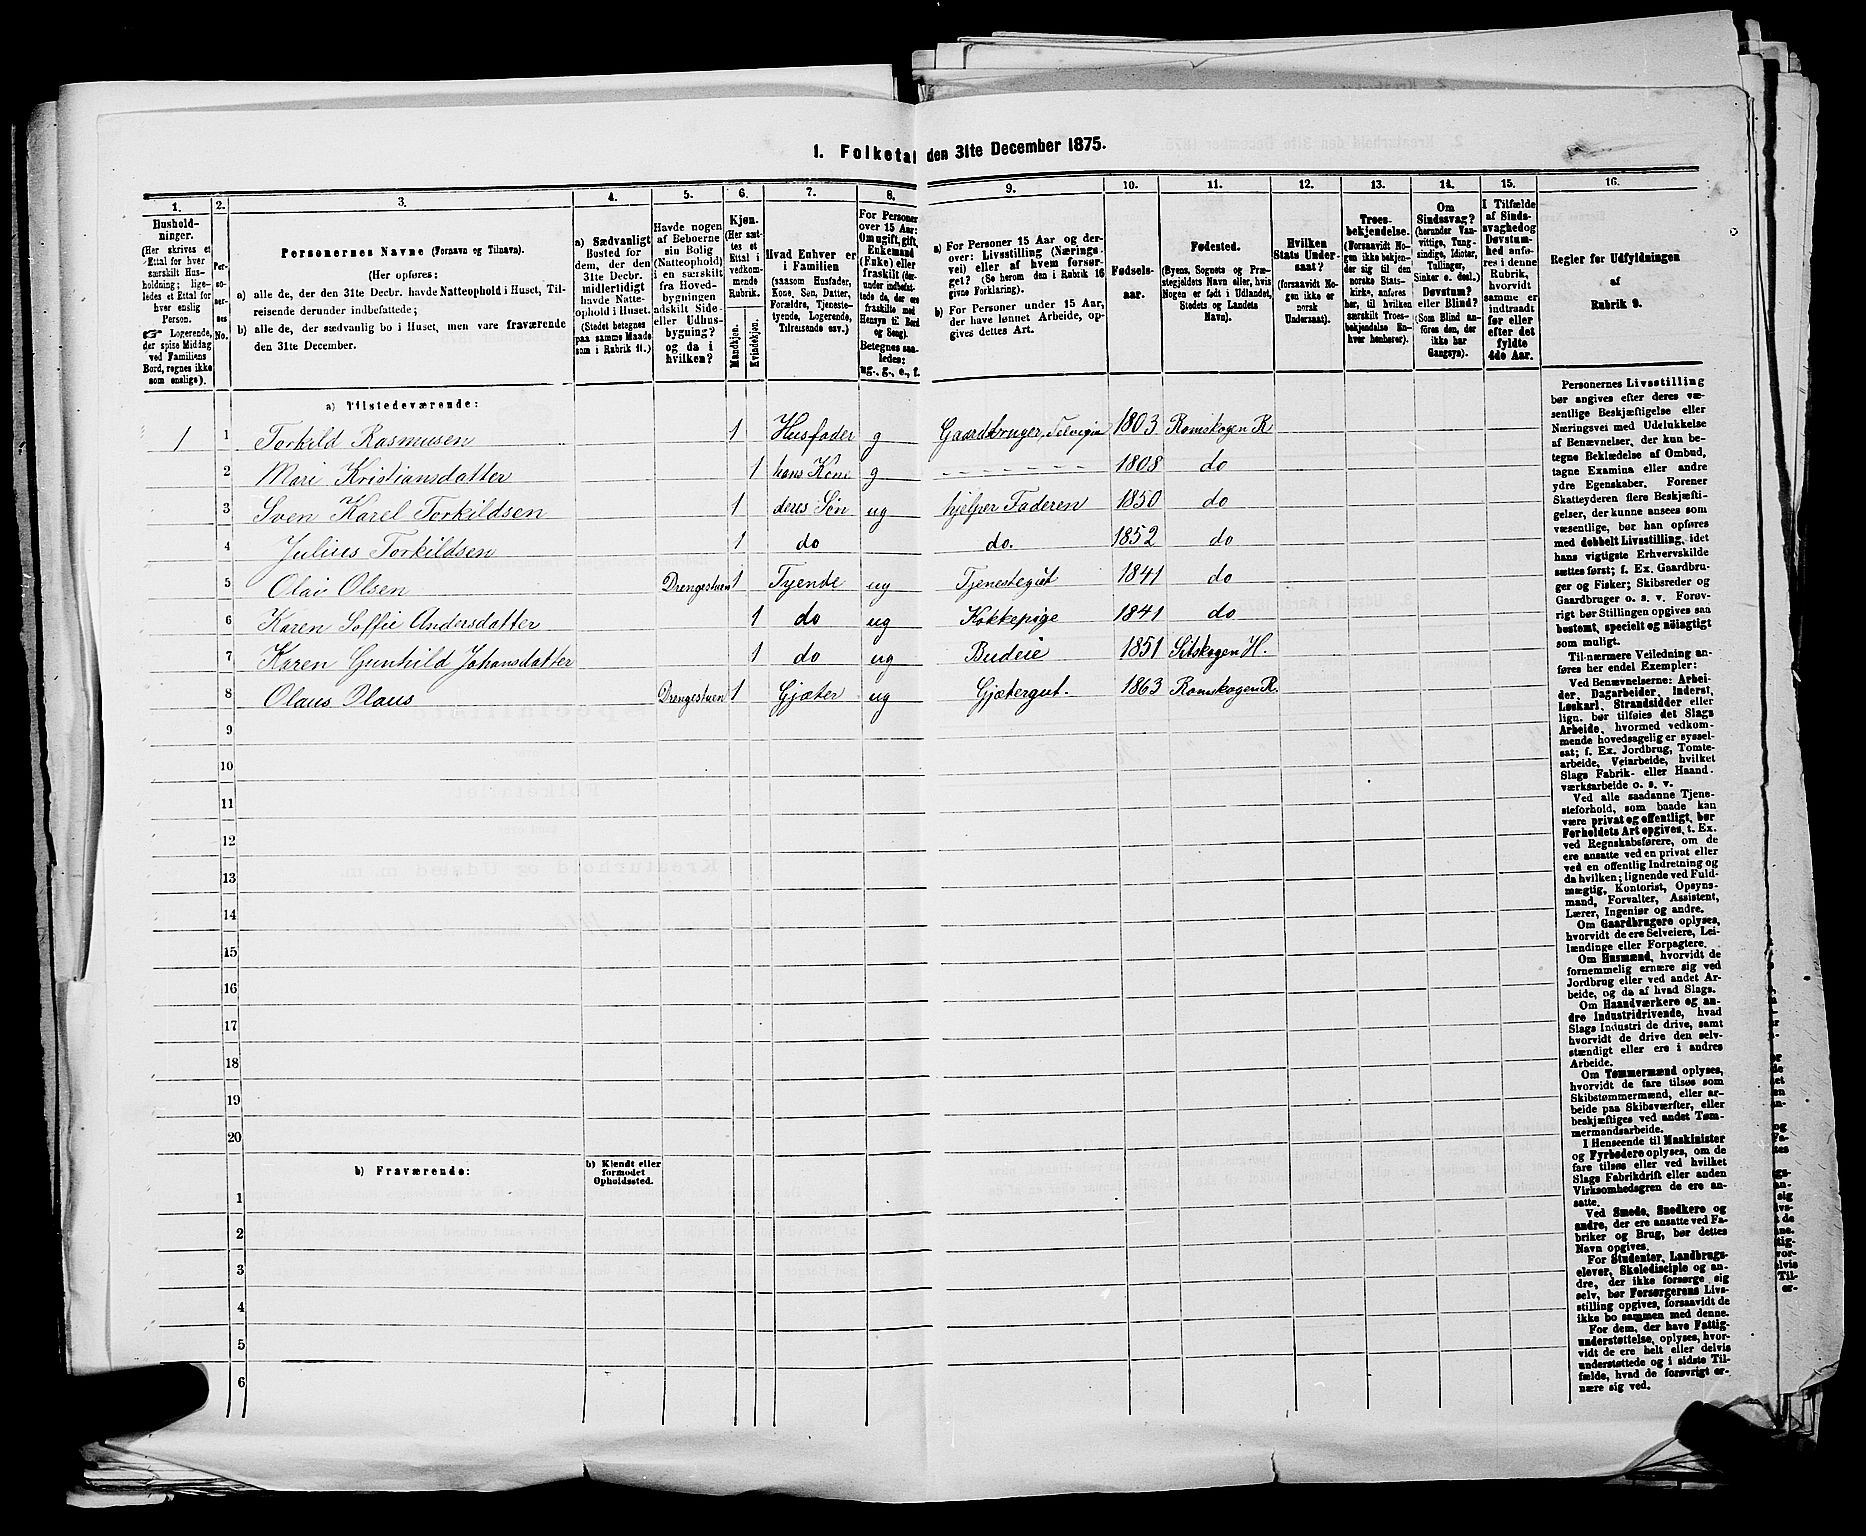 1. Folketal den 31te December 1875.
1. 2. 3. 4. 5. 6. 7. 8. 9. 10. 11. 12. 13. 14. 15. 16.
Husholdninger.
(Her skrives et
Ettal for hver
særskilt Husholdning;
ligeledes et Ettal for
hver enslig
Person.
☞ Logerende,
der spise Middag
ved Familiens
Bord, regnes ikke
som enslige).
Personernes No.
Personernes Navne (Fornavn og Tilnavn).
(Her opføres:
a) alle de, der den 31te Decbr. havde Natteophold i Huset, Tilreisende derunder indbefattede;
b) alle de, der sædvanlig bo i Huset, men vare fraværende
den 31te December.
a) Sædvanligt
Bosted for
dem, der den
31te Decbr.
midlertidigt
havde Natteophold i Huset.
(Stedet betegnes
paa samme Maade
som i Rubrik 11.)
Havde nogen
af Beboerne
sin Bolig
(Natteophold)
i en særskilt
fra Hovedbygningen
adskilt Side- eller Udhusbygning?
og da i
hvilken?
Kjøn.
(Her sættes et
Ettal i
vedkommende
Rubrik.
Mandkjøn.
Kvindekjøn.
Hvad Enhver er
i Familien
(saasom Husfader,
Kone, Søn, Datter,
Forældre, Tjenestetyende, Logerende,
Tilreisende osv.)
For Personer
over 15 Aar:
Om ugift, gift,
Enkemand
(Enke) eller
fraskilt (derunder indbefattede de, der ere
fraskilte med
Hensyn til Bord
og Seng).
Betegnes saaledes:
ug., g., e., f.
a) For Personer 15 Aar og derover: Livsstilling (Næringsvei) eller af hvem forsørget? (Se herom den i Rubrik 16
givne Forklaring).
b) For Personer under 15 Aar,
der have lønnet Arbeide, opgives dettes Art.
Fødselsaar.
Fødested.
(Byens, Sognets og Præstegjeldets Navn eller, hvis
Nogen er født i Udlandet,
Stedets og Landets
Navn).
Hvilken
Stats Undersaat?
(forsaavidt Nogen ikke er
norsk
Undersaat).
Troesbekjendelse.
(Forsaavidt Nogen ikke bekjender sig til den
norske Statskirke, anføres
her, til hvilken
særskilt Troesbekjendelse Enhver henhører).
Om
Sindssvag?
(herunder Vanvittige, Tungsindige, Idioter,
Tullinger,
Sinker o. desl.)
Døvstum?
eller Blind?
(Som Blind anføres den, der
ikke har
Gangsyn).
I Tilfælde
af Sindssvaghed og
Døvstumhed anføres i denne
Rubrik,
hvorvidt
samme er
indtraadt
før eller
efter det
fyldte
4de Aar.
Regler for Udfyldningen
af
Rubrik 9.
a) Tilstedeværende:
1 1 Torkild Rasmusen 1 Husfader g Gaardbruger, Selveier 1803 Romskogen R
2 Mari Kristiansdatter 1 hans Kone g - - - - - - - 1808 do
3 Sven Karel Torkildsen 1 deres Søn ug hjelper Faderen 1850 do
4 Julius Torkildsen 1 do do. 1852 do
5 Olai Olsen Drengestuen 1 Tyende ug Tjenestegut 1841 do
6 Karen Soffie Andersdatter 1 do ug Kokkepige 1841 do
7 Karen Gunhild Johansdatter 1 do ug Budeie 1851 Sitskogen H.
8 Olaus Olaus Drengestuen 1 Gjæter ug Gjætergut. 1863 Romskogen R.
9
10
11
12
13
14
15
16
17
18
19
20
b) Fraværende:
b) Kjendt eller
formodet
Opholdssted.
1
2
3
4
5
6
Personernes Livsstilling
bør angives efter deres væsentlige Beskjæftigelse eller
Næringsvei med Udelukkelse
af Benævnelser, der kun betegne Beklædelse af Ombud,
tagne Examina eller andre
ydre Egenskaber. Forener
Skatteyderen flere Beskjæftigelser, der kunne ansees som
væsentlige, bør han opføres
med dobbelt Livsstilling, idet
hans vigtigste Erhvervskilde
sættes først; f. Ex. Gaardbruger og Fisker; Skibsreder og
Gaardbruger o. s. v. Forøvrigt bør Stillingen opgives saa
bestemt, specielt og nøiagtigt
som muligt.
Til nærmere Veiledning anføres her endel Exempler:
Ved Benævnelserne: Arbeider, Dagarbeider, Inderst,
Løskarl, Strandsidder eller
lign. bør tilføies det Slags
Arbeide, hvormed vedkommende hovedsagelig er sysselsat; f. Ex. Jordbrug, Tomtearbeide, Veiarbeide, hvilket
Slags Fabrik- eller Haandværksarbeide o. s. v.
Ved alle saadanne Tjenesteforhold, som baade kan
være privat og offentligt, bør
Forholdets Art opgives, t. Ex.
ved Regnskabsførere, om de
ere ansatte ved en privat eller
ved en offentlig Indretning og
da hvilken; lignende ved Fuldmægtig, Kontorist, Opsynsmand, Forvalter, Assistent,
Lærer, Ingeniør og andre.
Om Gaardbrugere oplyses,
hvorvidt de ere Selveiere, Leilændinge eller Forpagtere.
Om Husmænd, hvorvidt de
fornemmelig ernære sig ved
Jordbrug eller ved andet Arbeide, og da af hvad Slags.
Om Haandværkere og andre Industridrivende, hvad
Slags Industri de drive, samt
hvorvidt de drive den selvstændigt eller ere i andres
Arbeide.
Om Tømmermænd oplyses,
hvorvidt de fare tilsøs som
Skibstømmermænd, eller arbeide paa Skibsværfter, eller
beskjæftiges ved andet Tømmermandsarbeide.
I Henseende til Maskinister
og Fyrbødere oplyses, om de
fare tilsøs eller ved hvilket
Slags Fabrikdrift eller anden
Virksomhedsgren de ere ansatte.
Ved Smede, Snedkere og
andre, der ere ansatte ved Fabriker og Brug, bør dettes
Navn opgives.
For Studenter, Landbrugselever, Skoledisciple og andre, der ikke forsørge sig
selv, bør Forsørgerens Livsstilling opgives, forsaavidt de
ikke bo sammen med denne.
For dem, der have Fattigunderstøttelse, oplyses, hvorvidt de ere helt eller delvis
understøttede og i sidste Tilfælde, hvad de forøvrigt ernære sig ved.